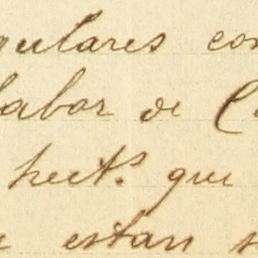 gulares con
labor de C
hect.s que
e estan s